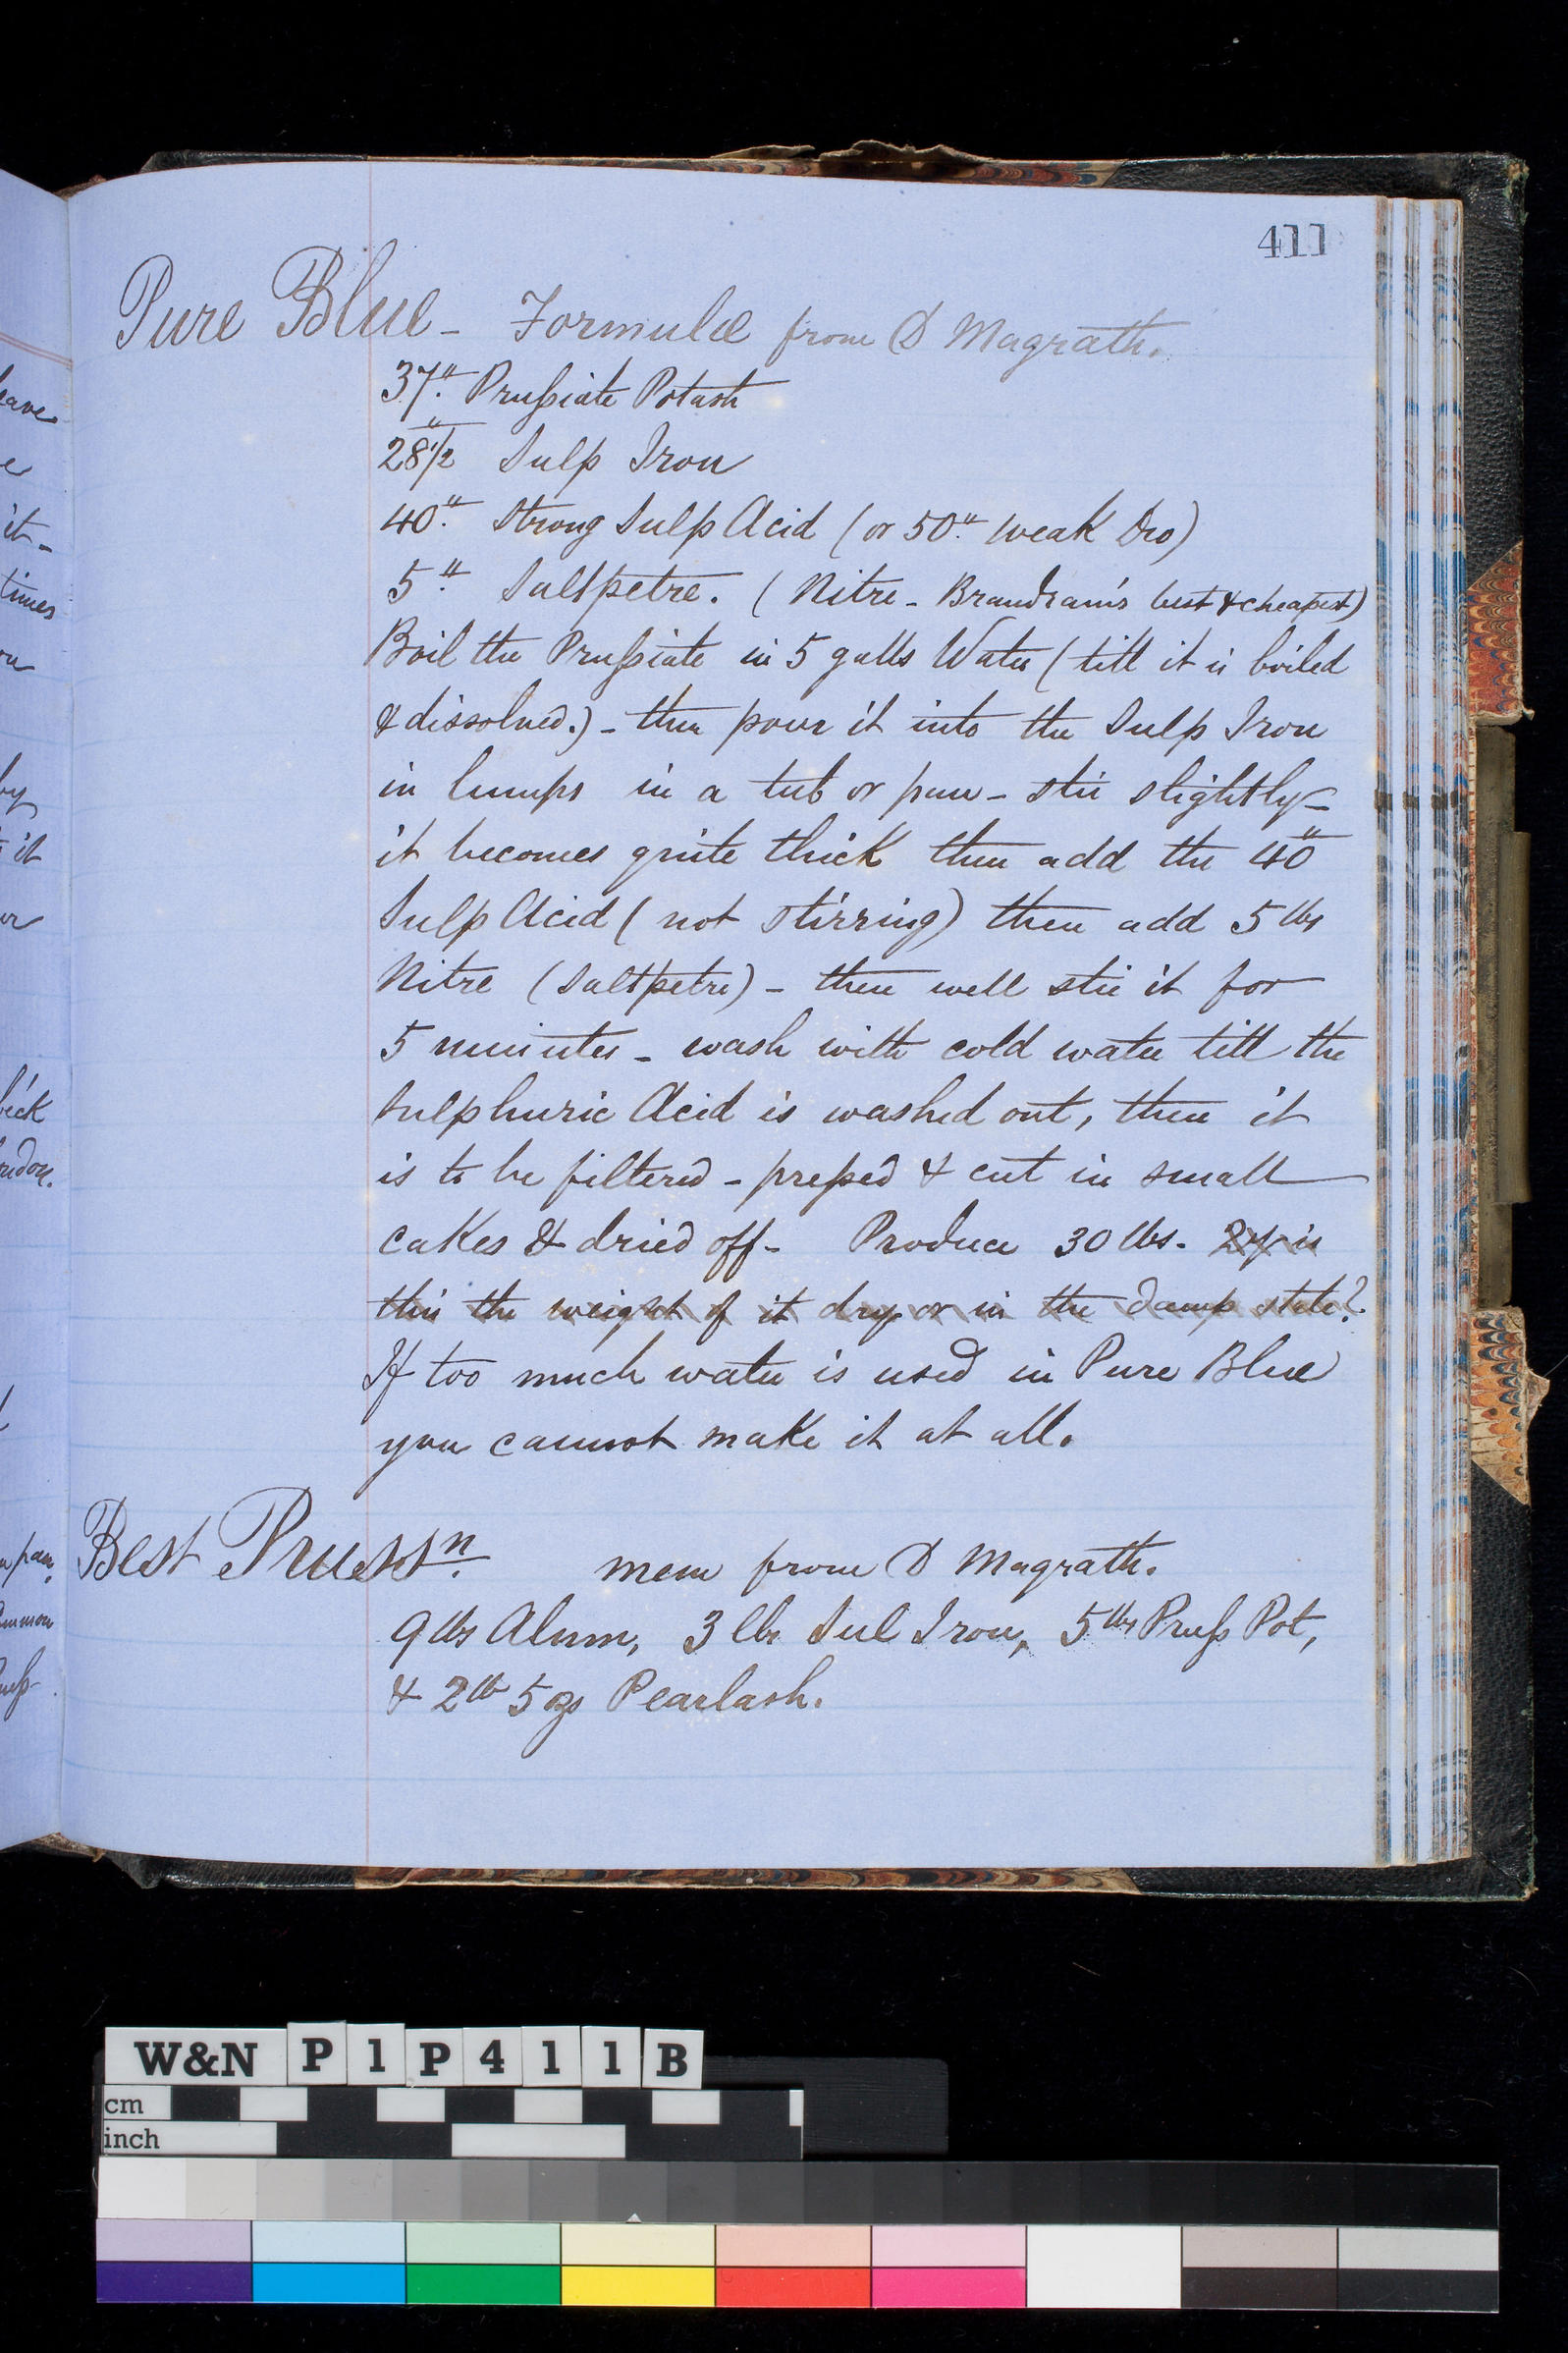 411
Pure Blue - Formulæ from D Magrath.
37" Prussiate Potash
28 1/2" Sulp Iron
40" Strong Sulp Acid (or 50" weak Do)
5" Saltpetre. (Nitre - Brandram's best & cheapest)
Boil the Prussiate in 5 galls Water (till it is boiled
& dissolved.) - then pour it into the Sulp Iron
in lumps in a tub or pan - stir slightly -
it becomes quite thick then add the 40"
Sulp Acid (not stirring) then add 5 lbs
Nitre (Saltpetre) - then well stir it for
5 minutes - wash with cold water till the
Sulphuric Acid is washed out, then it
is to be filtered - pressed & cut in small
cakes & dried off - Produce 30 lbs. is
this the weight of it dry or in the damp state?
If too much water is used in Pure Blue
you cannot make it at all.
Best Prussn. mem from D Magrath.
9 lbs Alum, 3 lbs Sul Iron, 5 lbs Pruss Pot,
& 2 lb 5 ozs Pearlash.
eave
it -
times
by
it
or
eck
ndon.
pan.
W&N P1P411B
cm
inch